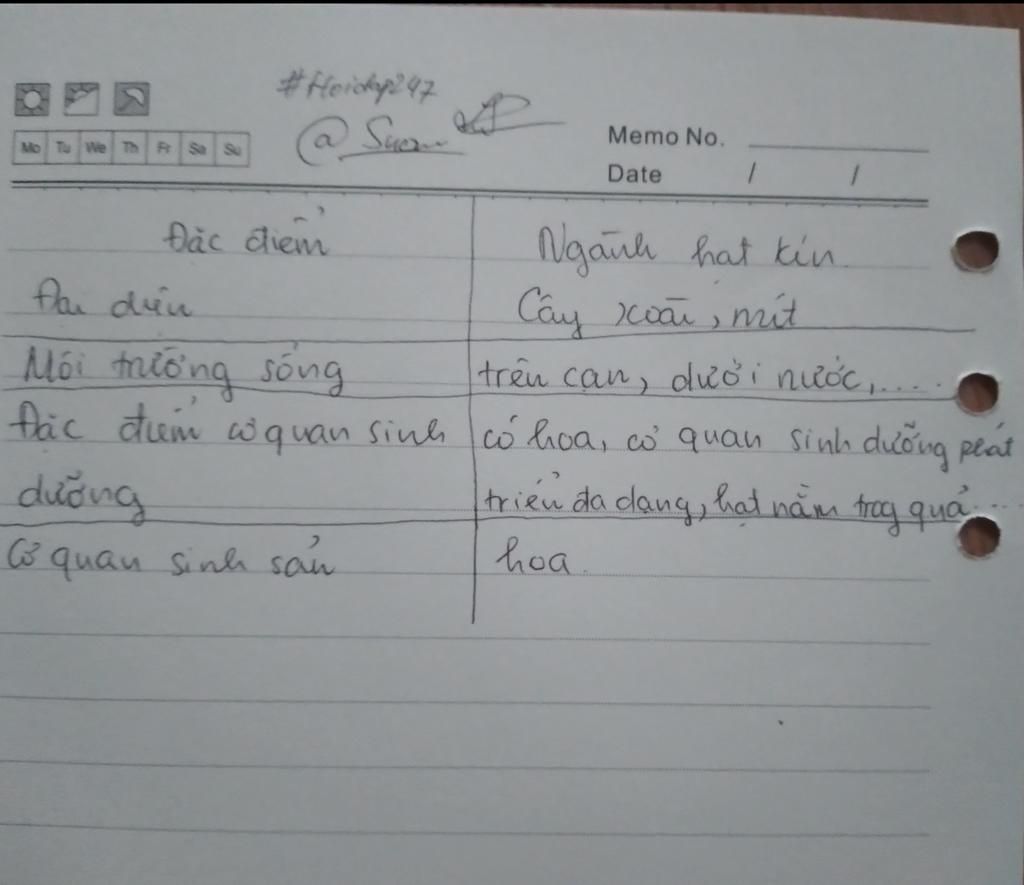 #Hoidap247
Mo Tu We Th Fr Sa Su
Memo No.
Date / /
Đặc điểm Ngành hạt kín
Đại diện Cây xoài, mít
Môi trường sống trên cạn, dưới nước,....
Đặc điểm cơ quan sinh có hoa, cơ quan sinh dưỡng phát
dưỡng triển đa dạng, hạt nằm trog quả...
Cơ quan sinh sản hoa.